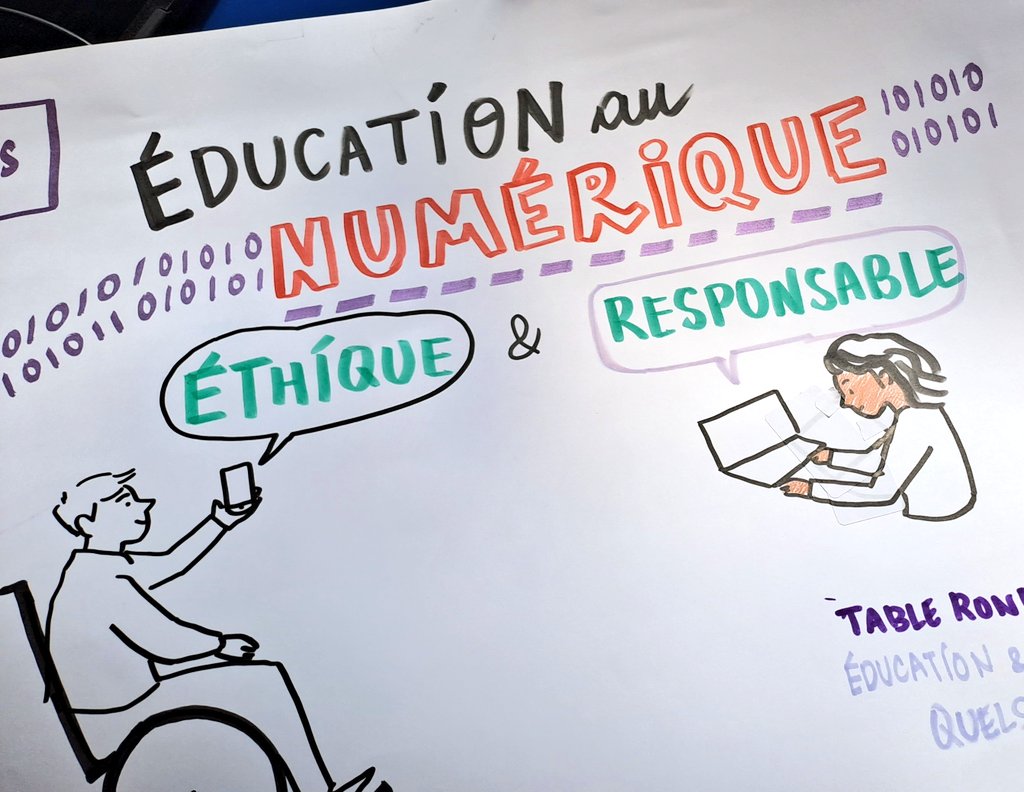 ÉDUCATION au
NUMÉRIQUE
101010
010101
0101010101010
1010110101 01
ÉTHIQUE & RESPONSABLE
TABLE
ÉDUCATION &
QUELS